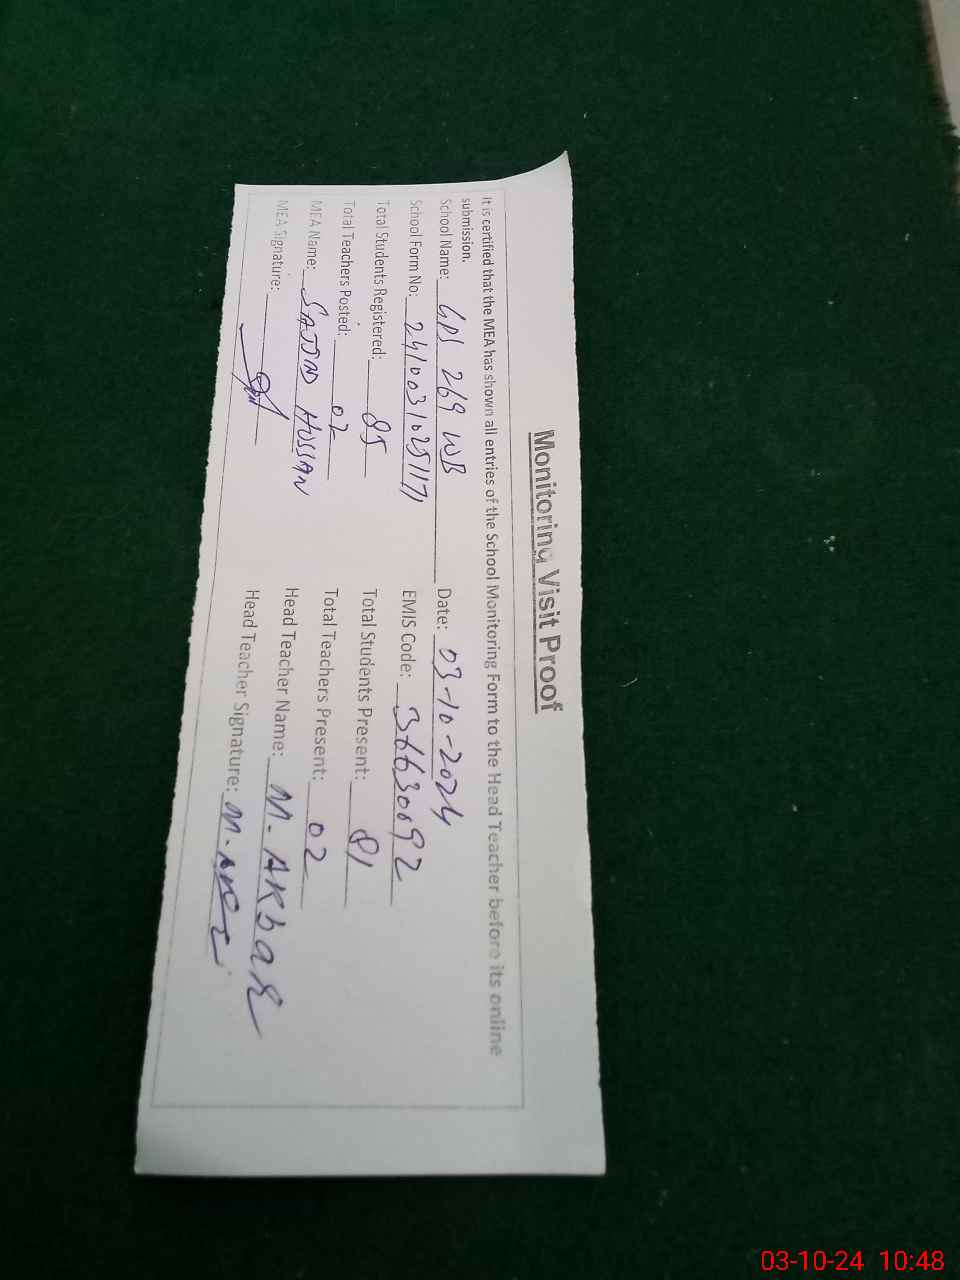 Monitoring Visit Proof
It is certified that the MEA has shown all entries of the School Monitoring Form to the Head Teacher before its online
submission.
School Name: GPS 269 WB Date: 03-10-2024
School Form No: 24100310251171 EMIS Code: 36630092
Total Students Registered: 85 Total Students Present: 81
Total Teachers Posted: 02 Total Teachers Present: 02
MEA Name: SAJJAD HUSSAN Head Teacher Name: M. AKbaR
MEA Signature: Head Teacher Signature:
03-10-24 10:48